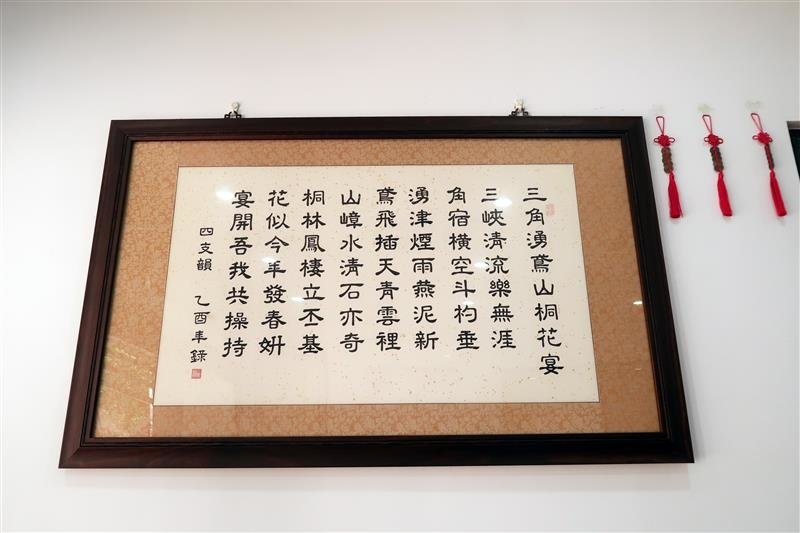 三角湧鳶山桐花宴
三峽清流樂無涯
角宿橫空斗杓垂
湧津煙雨燕泥新
鳶飛插天青雲裡
山嶂水清石亦奇
桐林鳳棲立丕基
花似今年發春妍
宴開吾我共操持
四支韻 乙酉年錄